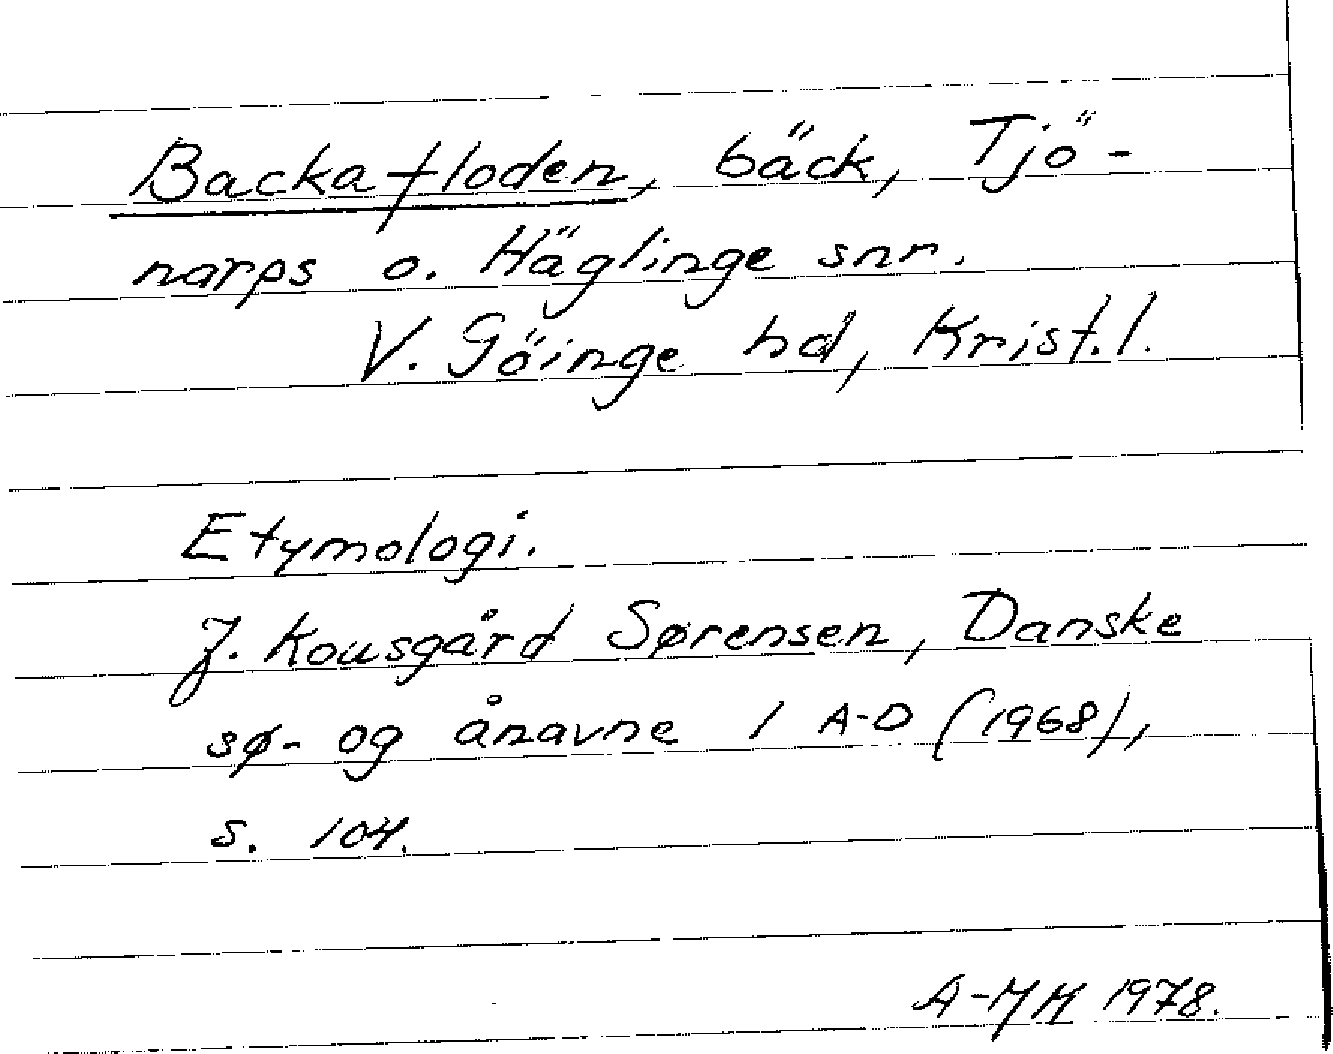 Backafloden, bäck, Tjö-
narps o. Häglinge snr.
V. Göinge hd, Krist. l.
Etymologi.
J. Kousgård Sørensen, Danske
sø- og ånavne 1 A-D (1968),
s. 104.
A-MM 1978.